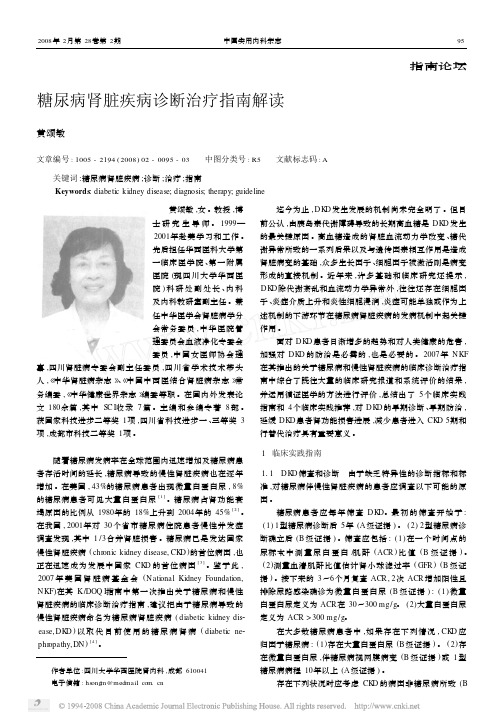 2008年 2月第 28卷第 2期
中国实用内科杂志
95
指南论坛
糖尿病肾脏疾病诊断治疗指南解读
黄颂敏
文章编号：1005 - 2194 (2008) 02 - 0095 - 03 中图分类号：R5 文献标志码：A
关键词：糖尿病肾脏疾病；诊断；治疗；指南
Keywords: diabetic kidney disease; diagnosis; therapy; guideline
黄颂敏，女。教授，博
士研究生导师。1999—
2001年赴美学习和工作。
先后担任华西医科大学第
一临床医学院、第一附属
医院 (现四川大学华西医
院 )科研处副处长、内科
及内科教研室副主任。兼
任中华医学会肾脏病学分
会常务委员，中华医院管
理委员会血液净化专委会
委员，中国女医师协会理
事，四川肾脏病专委会副主任委员，四川省学术技术带头
人，《中华肾脏病杂志 》、《中国中西医结合肾脏病杂志 》常
务编委，《中华健康世界杂志 》编委等职。在国内外发表论
文 180余篇，其中 SCI收录 7篇。主编和参编专著 8部。
获国家科技进步二等奖 1项，四川省科技进步一、三等奖 3
项，成都市科技二等奖 1项。
随着糖尿病发病率在全球范围内迅速增加及糖尿病患
者存活时间的延长，糖尿病导致的慢性肾脏疾病也在逐年
增加。在美国，43%的糖尿病患者出现微量白蛋白尿，8%
的糖尿病患者可见大量白蛋白尿 [1]。糖尿病占肾功能衰
竭原因的比例从 1980年的 18%上升到 2004年的 45% [2]。
在我国，2001年对 30个省市糖尿病住院患者慢性并发症
调查发现，其中 1/3合并肾脏损害。糖尿病已是发达国家
慢性肾脏疾病 (chronic kidney disease, CKD)的首位病因，也
正在迅速成为发展中国家 CKD 的首位病因 [3]。鉴于此，
2007年美国肾脏病基金会 (National Kidney Foundation,
NKF)在其 K/DOQ I指南中第一次推出关于糖尿病和慢性
肾脏疾病的临床诊断治疗指南，建议把由于糖尿病导致的
慢性肾脏疾病命名为糖尿病肾脏疾病 (diabetic kidney dis-
ease, DKD)以取代目前使用的糖尿病肾病 (diabetic ne-
phropathy, DN) [4]。
作者单位：四川大学华西医院肾内科，成都 610041
电子信箱：hsongm@medmail.com.cn
迄今为止，DKD发生发展的机制尚未完全明了。但目
前公认，由胰岛素代谢障碍导致的长期高血糖是 DKD发生
的最关键原因。高血糖造成的肾脏血流动力学改变、糖代
谢异常所致的一系列后果以及与遗传因素相互作用是造成
肾脏病变的基础，众多生长因子、细胞因子被激活则是病变
形成的直接机制。近年来，许多基础和临床研究还提示，
DKD除代谢紊乱和血流动力学异常外，往往还存在细胞因
子、炎症介质上升和炎性细胞浸润，炎症可能单独或作为上
述机制的下游环节在糖尿病肾脏疾病的发病机制中起关键
作用。
面对 DKD患者日渐增多的趋势和对人类健康的危害，
加强对 DKD的防治是必需的，也是必要的。2007年 NKF
在其推出的关于糖尿病和慢性肾脏疾病的临床诊断治疗指
南中综合了既往大量的临床研究报道和系统评价的结果，
并运用循证医学的方法进行评价，总结出了 5个临床实践
指南和 4个临床实践推荐，对 DKD的早期诊断、早期防治，
延缓 DKD患者肾功能损害进展，减少患者进入 CKD 5期和
行替代治疗具有重要意义。
1 临床实践指南
1. 1 DKD筛查和诊断 由于缺乏特异性的诊断指标和标
准，对糖尿病伴慢性肾脏疾病的患者应调查以下可能的原
因。
糖尿病患者应每年筛查 DKD。最初的筛查开始于：
(1) 1型糖尿病诊断后 5年 (A级证据 )。(2) 2型糖尿病诊
断确立后 (B级证据 )。筛查应包括：(1)在一个时间点的
尿标本中测量尿白蛋白 /肌酐 (ACR)比值 (B 级证据 )。
(2)测量血清肌酐比值估计肾小球滤过率 (GFR) (B级证
据 )。接下来的 3~6个月复查 ACR, 2次 ACR增加阳性且
排除尿路感染确诊为微量白蛋白尿 (B级证据 )：(1)微量
白蛋白尿定义为 ACR在 30~300 mg/g。(2)大量白蛋白尿
定义为 ACR >300 mg/g。
在大多数糖尿病患者中，如果存在下列情况，CKD应
归因于糖尿病：(1)存在大量白蛋白尿 (B级证据 )。(2)存
在微量白蛋白尿，伴糖尿病视网膜病变 (B级证据 )或 1型
糖尿病病程 10年以上 (A级证据 )。
存在下列状况时应考虑 CKD的病因非糖尿病所致 (B
© 1994-2008 China Academic Journal Electronic Publishing House. All rights reserved. http://www.cnki.net